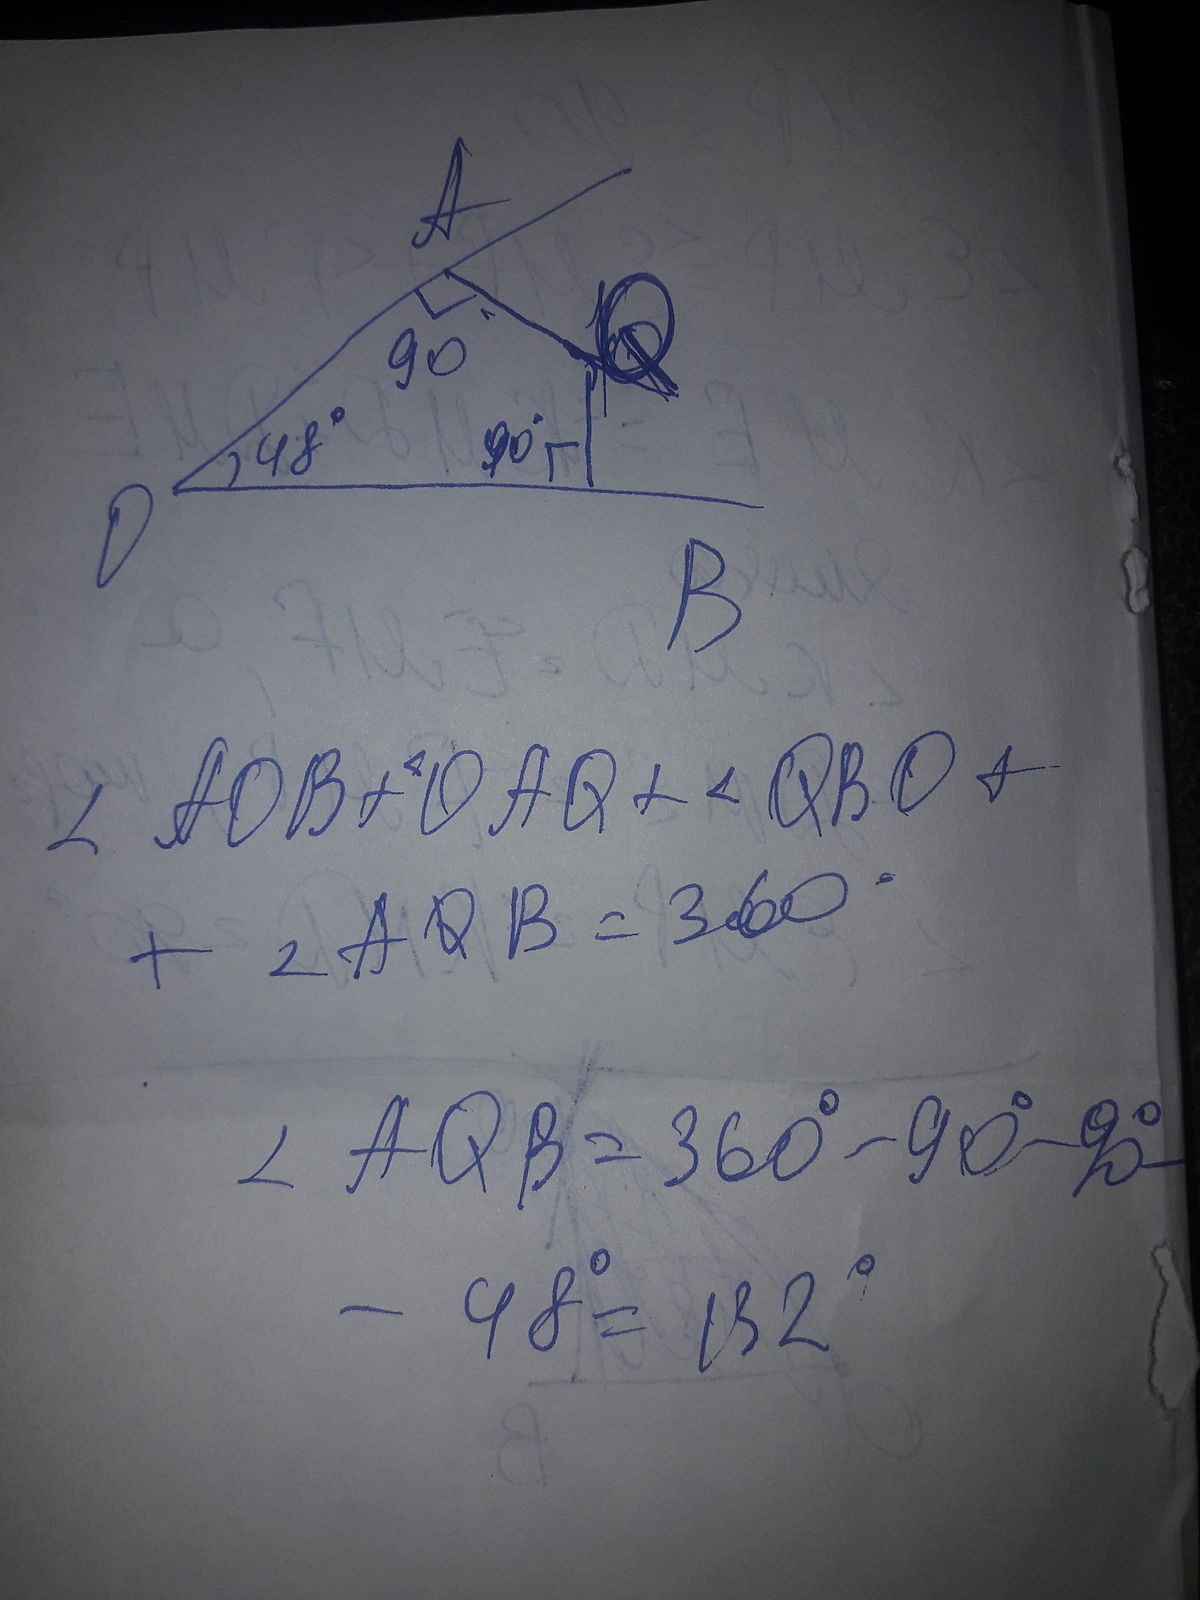 A
Q
90°
48°
90°
O
B
∠ AOB + ∠OAQ + ∠ QBO +
+ ∠AQB = 360°
∠ AQB = 360° - 90° - 90° -
- 48° = 132°